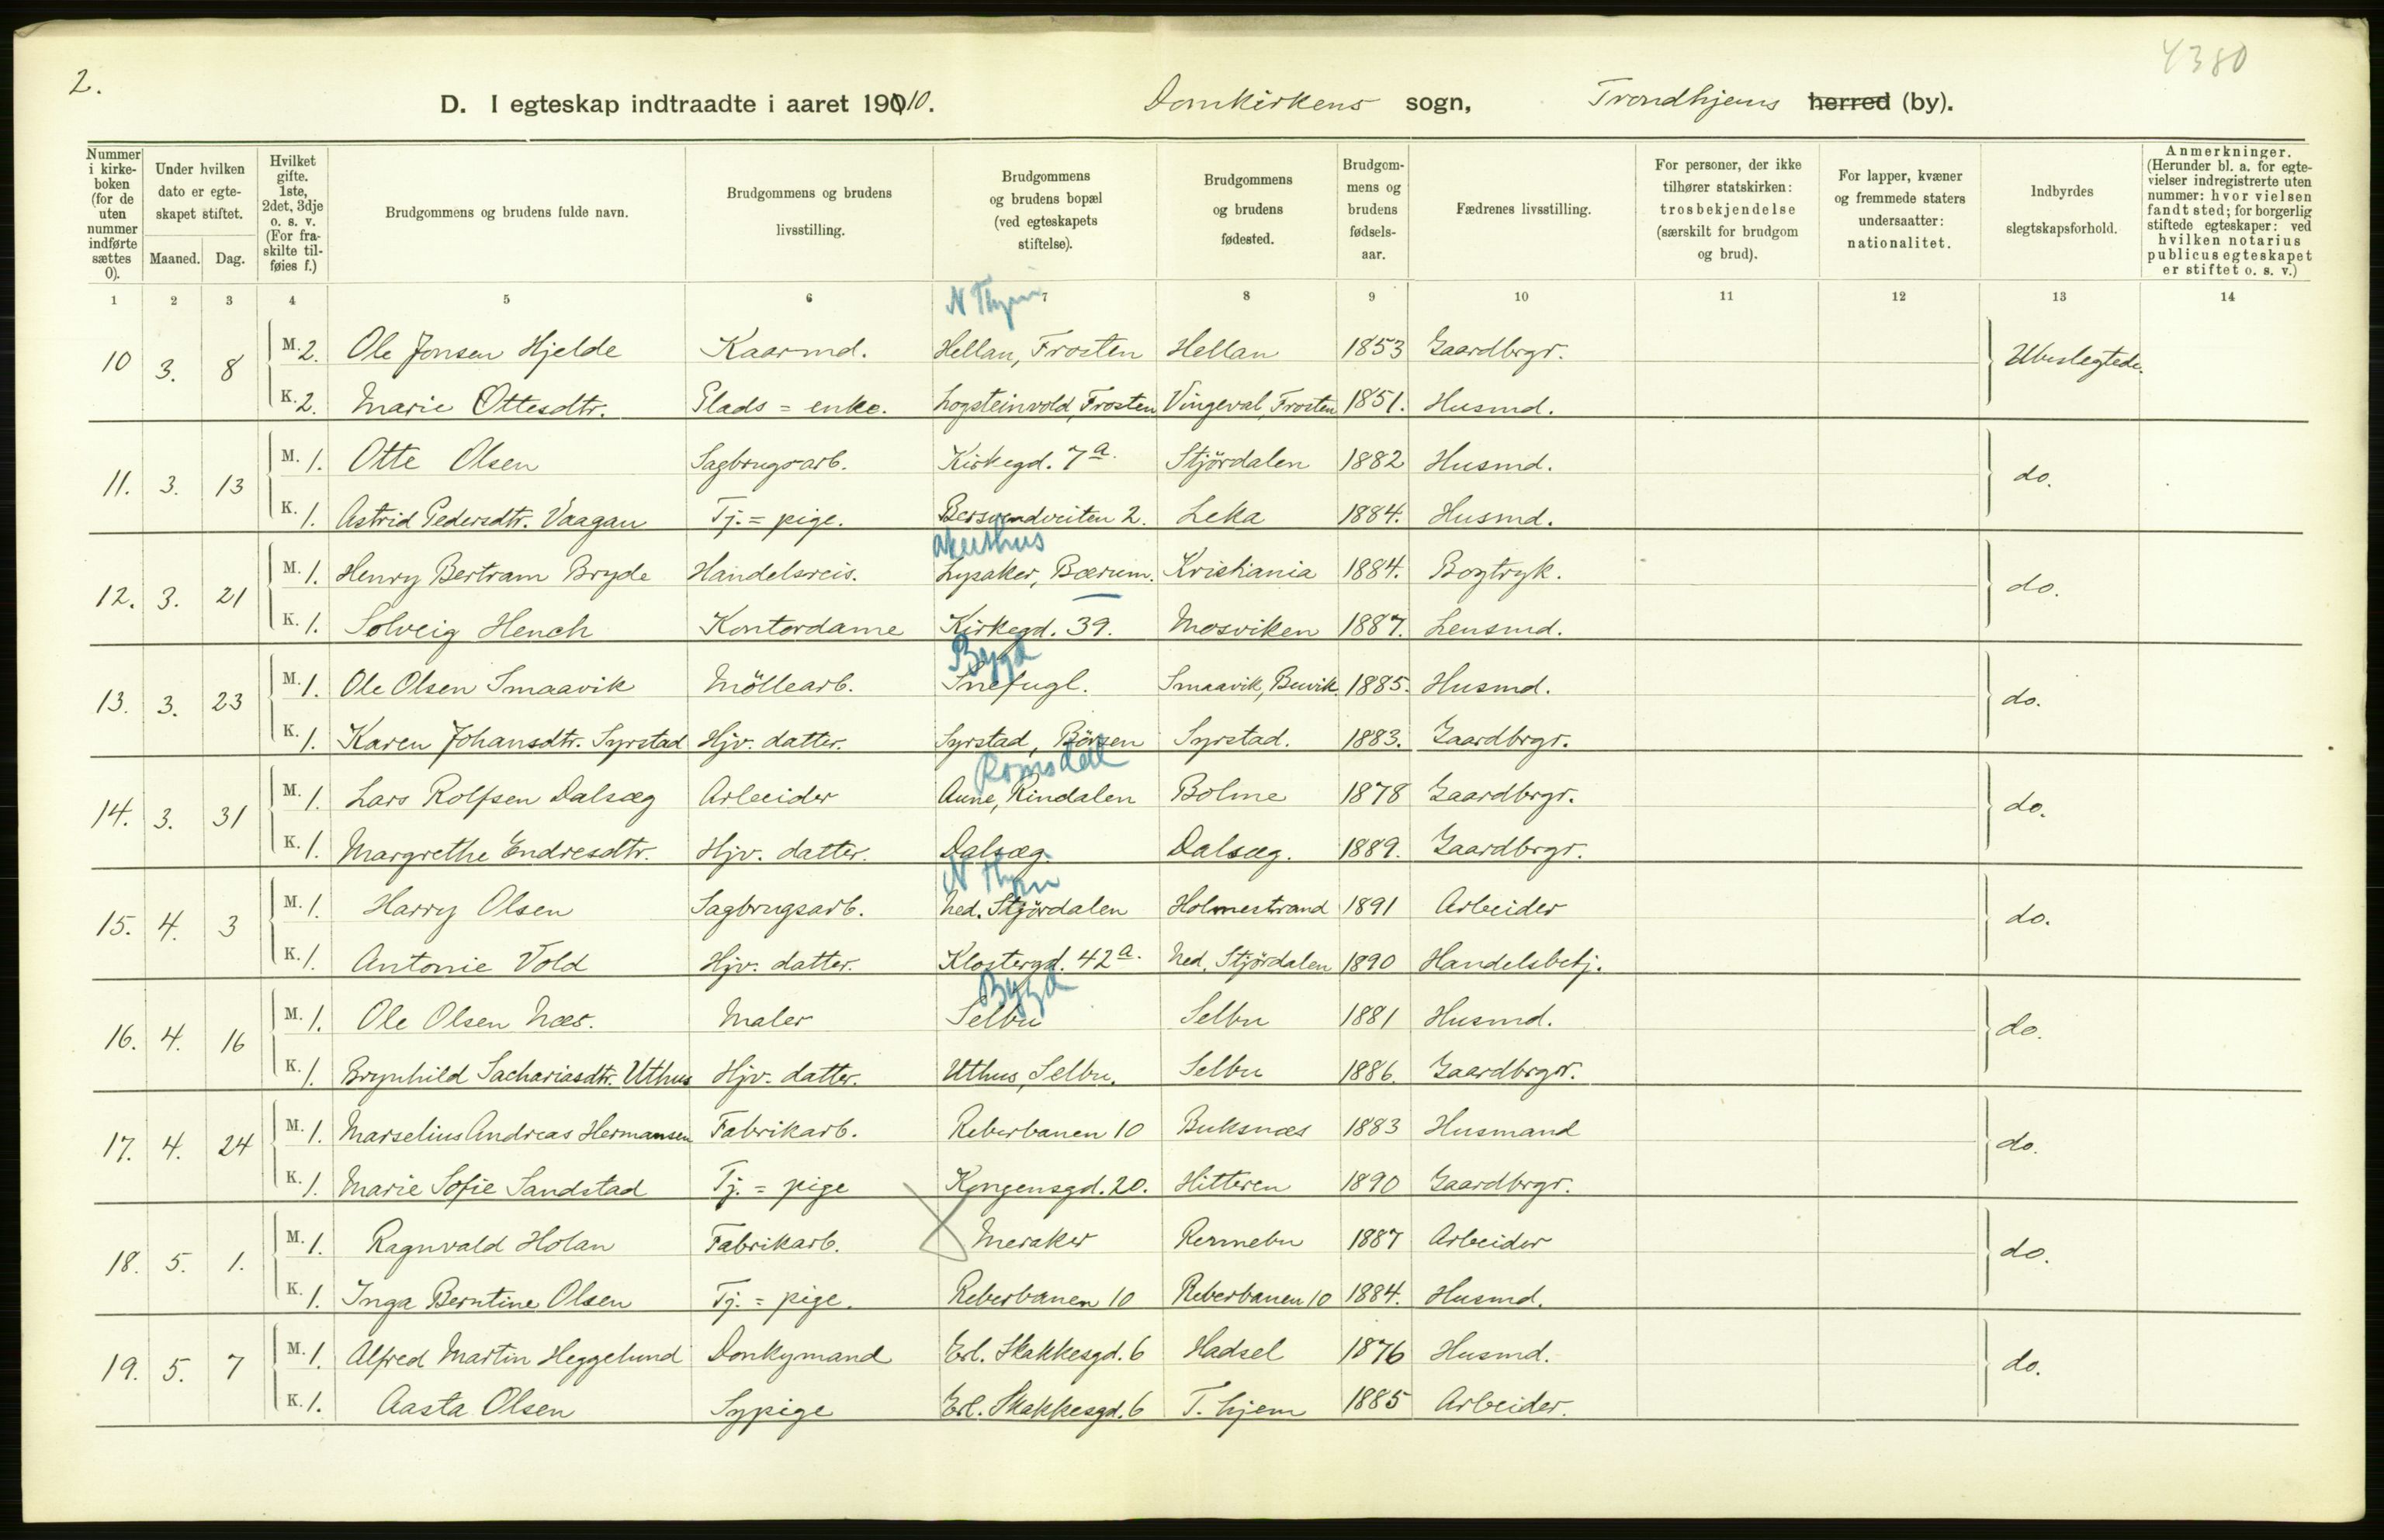 4380
2.
D. I egteskap indtraadte i aaret 19010. Domkirkens sogn, Trondhjems herred (by).
Nummer i kirkeboken (for de uten nummer indførte sættes 0).
Under hvilken dato er egteskapet stiftet.
Maaned. Dag.
Hvilket gifte. 1ste, 2det, 3dje o. s. v. (For fraskilte tilføies f.)
Brudgommens og brudens fulde navn.
Brudgommens og brudens livsstilling.
Brudgommens og brudens bopæl (ved egteskapets stiftelse).
Brudgommens og brudens fødested.
Brudgommens og brudens fødselsaar.
Fædrenes livsstilling.
For personer, der ikke tilhører statskirken: trosbekjendelse (særskilt for brudgom og brud).
For lapper, kvæner og fremmede staters undersaatter: nationalitet.
Indbyrdes slegtskapsforhold.
Anmerkninger. (Herunder bl. a. for egtevielser indregistrerte uten nummer: hvor vielsen fandt sted; for borgerlig stiftede egteskaper: ved hvilken notarius publicus egteskapet er stiftet o. s. v.)
1 2 3 4 5 6 7 8 9 10 11 12 13 14
N Thjem
10 3. 8 M. 2. Ole Jonsen Hjelde Kaarmd. Hellan, Frosten Hellan 1853 Gaardbrgr. Ubeslegtede.
K. 2. Marie Ottesdtr. Plads=enke. Logsteinvold, Frosten Vingeval, Frosten 1851. Husmd.
11. 3. 13 M. 1. Otte Olsen Sagbrugsarb. Kirkegd. 7a. Stjördalen 1882 Husmd. do.
K. 1. Astrid Pedersdtr. Vaagan Tj.=pige. Bersvendveiten 2. Leka 1884. Husmd.
Akershus
12. 3. 21 M. 1. Henry Bertram Bryde Handelsreis. Lysaker, Bærum. Kristiania 1884. Bogtryk. do.
K. 1. Solveig Hench Kontordame Kirkegd. 39. Mosviken 1887. Lensmd.
Bygd
13. 3. 23 M. 1. Ole Olsen Smaavik Möllearb. Snefugl. Smaavik, Buvik 1885. Husmd. do.
K. 1. Karen Johansdtr. Syrstad Hjv. datter. Syrstad, Börsen Syrstad. 1883. Gaardbrgr.
Romsdal
14. 3. 31 M. 1. Lars Rolfsen Dalsæg Arbeider Aune, Rindalen Bolme 1878 Gaardbrgr. do.
K. 1. Margrethe Endresdtr. Hjv. datter. Dalsæg. Dalsæg. 1889. Gaardbrgr.
N Thjem
15. 4. 3 M. 1. Harry Olsen Sagbrugsarb. Ned. Stjördalen Holmestrand 1891 Arbeider do.
K. 1. Antonie Vold Hjv. datter. Klostergd. 42a. Ned. Stjördalen 1890 Handelsbetj.
Bygd
16. 4. 16 M. 1. Ole Olsen Næs. Maler Selbu Selbu 1881 Husmd. do.
K. 1. Brynhild Sachariasdtr. Uthus Hjv. datter. Uthus, Selbu. Selbu 1886. Gaardbrgr.
17. 4. 24 M. 1. Marselius Andreas Hermansen Fabrikarb. Reberbanen 10 Buksnæs 1883 Husmand do.
K. 1. Marie Sofie Sandstad Tj.=pige Kongensgd. 20. Hitteren 1890 Gaardbrgr.
18. 5. 1. M. 1. Ragnvald Holan Fabrikarb. Meraker Rennebu 1887 Arbeider do.
K. 1. Inga Berntine Olsen Tj.=pige. Reberbanen 10 Reberbanen 10 1884. Husmd.
19. 5. 7 M. 1. Alfred Martin Heggelund Donkymand Erl. Skakkesgd. 6 Hadsel 1876 Husmd. do.
K. 1. Aasta Olsen Sypige Erl. Skakkesgd. 6 T. hjem 1885 Arbeider.